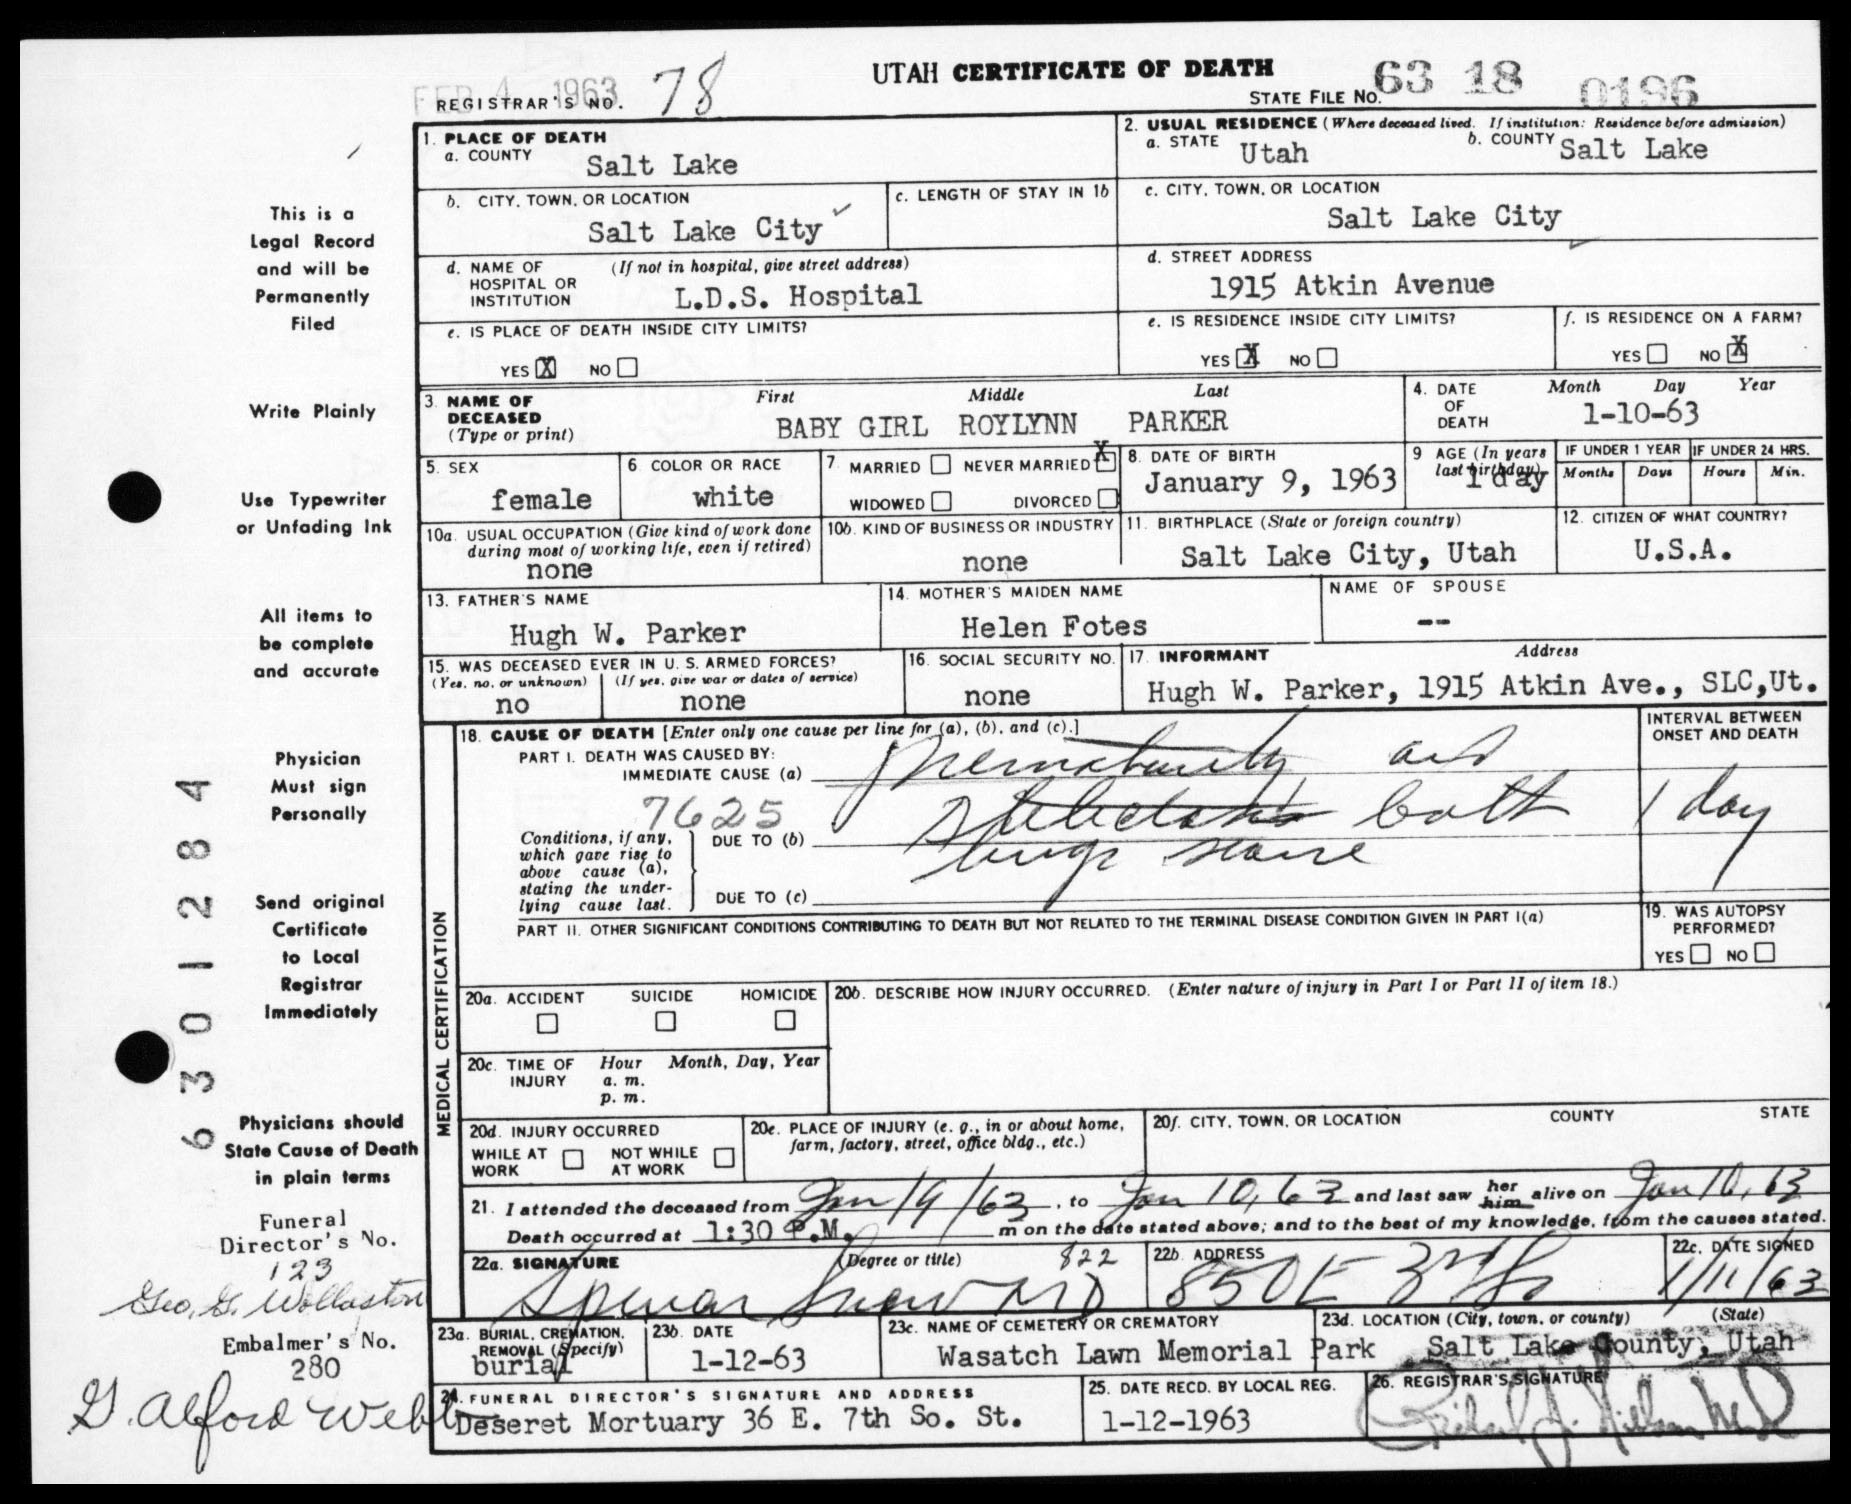 FEB 4 1963
REGISTRAR'S NO. 78
UTAH CERTIFICATE OF DEATH
STATE FILE NO. 63 18 0196
1. PLACE OF DEATH
a. COUNTY Salt Lake
2. USUAL RESIDENCE (Where deceased lived. If institution: Residence before admission)
a. STATE Utah b. COUNTY Salt Lake
b. CITY, TOWN, OR LOCATION Salt Lake City
c. LENGTH OF STAY IN 1b
c. CITY, TOWN, OR LOCATION Salt Lake City
d. NAME OF HOSPITAL OR INSTITUTION (If not in hospital, give street address) L.D.S. Hospital
d. STREET ADDRESS 1915 Atkin Avenue
e. IS PLACE OF DEATH INSIDE CITY LIMITS?
YES X NO
e. IS RESIDENCE INSIDE CITY LIMITS?
YES X NO
f. IS RESIDENCE ON A FARM?
YES NO X
3. NAME OF DECEASED (Type or print)
First Middle Last
BABY GIRL ROYLYNN PARKER
4. DATE OF DEATH Month Day Year
1-10-63
5. SEX female
6. COLOR OR RACE white
7. MARRIED NEVER MARRIED X
WIDOWED DIVORCED
8. DATE OF BIRTH January 9, 1963
9 AGE (In years last birthday) 1 day
IF UNDER 1 YEAR Months Days
IF UNDER 24 HRS. Hours Min.
10a. USUAL OCCUPATION (Give kind of work done during most of working life, even if retired) none
10b. KIND OF BUSINESS OR INDUSTRY none
11. BIRTHPLACE (State or foreign country) Salt Lake City, Utah
12. CITIZEN OF WHAT COUNTRY? U.S.A.
13. FATHER'S NAME Hugh W. Parker
14. MOTHER'S MAIDEN NAME Helen Fotes
NAME OF SPOUSE --
15. WAS DECEASED EVER IN U. S. ARMED FORCES?
(Yes, no, or unknown) no (If yes, give war or dates of service) none
16. SOCIAL SECURITY NO. none
17. INFORMANT Address
Hugh W. Parker, 1915 Atkin Ave., SLC,Ut.
MEDICAL CERTIFICATION
18. CAUSE OF DEATH [Enter only one cause per line for (a), (b), and (c).]
INTERVAL BETWEEN ONSET AND DEATH
PART I. DEATH WAS CAUSED BY:
IMMEDIATE CAUSE (a) Prematurity and
7625
Conditions, if any, which gave rise to above cause (a), stating the underlying cause last.
DUE TO (b) atelectasis both
lungs
DUE TO (c)
1 day
PART II. OTHER SIGNIFICANT CONDITIONS CONTRIBUTING TO DEATH BUT NOT RELATED TO THE TERMINAL DISEASE CONDITION GIVEN IN PART I(a)
19. WAS AUTOPSY PERFORMED?
YES NO
20a. ACCIDENT SUICIDE HOMICIDE
20b. DESCRIBE HOW INJURY OCCURRED. (Enter nature of injury in Part I or Part II of item 18.)
20c. TIME OF INJURY Hour Month, Day, Year
a. m.
p. m.
20d. INJURY OCCURRED
WHILE AT WORK NOT WHILE AT WORK
20e. PLACE OF INJURY (e. g., in or about home, farm, factory, street, office bldg., etc.)
20f. CITY, TOWN, OR LOCATION COUNTY STATE
21. I attended the deceased from Jan/9/63, to Jan 10, 63 and last saw her him alive on Jan 10, 63
Death occurred at 1:30 P.M. m on the date stated above; and to the best of my knowledge, from the causes stated.
22a. SIGNATURE (Degree or title) 822
Spencer Snow MD
22b. ADDRESS 850 E 3rd So
22c. DATE SIGNED 1/11/63
23a. BURIAL, CREMATION, REMOVAL (Specify) burial
23b. DATE 1-12-63
23c. NAME OF CEMETERY OR CREMATORY Wasatch Lawn Memorial Park
23d. LOCATION (City, town, or county) (State)
Salt Lake County, Utah
24. FUNERAL DIRECTOR'S SIGNATURE AND ADDRESS
Deseret Mortuary 36 E. 7th So. St.
25. DATE RECD. BY LOCAL REG. 1-12-1963
26. REGISTRAR'S SIGNATURE
This is a
Legal Record
and will be
Permanently
Filed
Write Plainly
Use Typewriter
or Unfading Ink
All items to
be complete
and accurate
Physician
Must sign
Personally
Send original
Certificate
to Local
Registrar
Immediately
Physicians should
State Cause of Death
in plain terms
Funeral
Director's No.
123
Geo. G. Wollaston
Embalmer's No.
280
G. Alford Webb
6301284